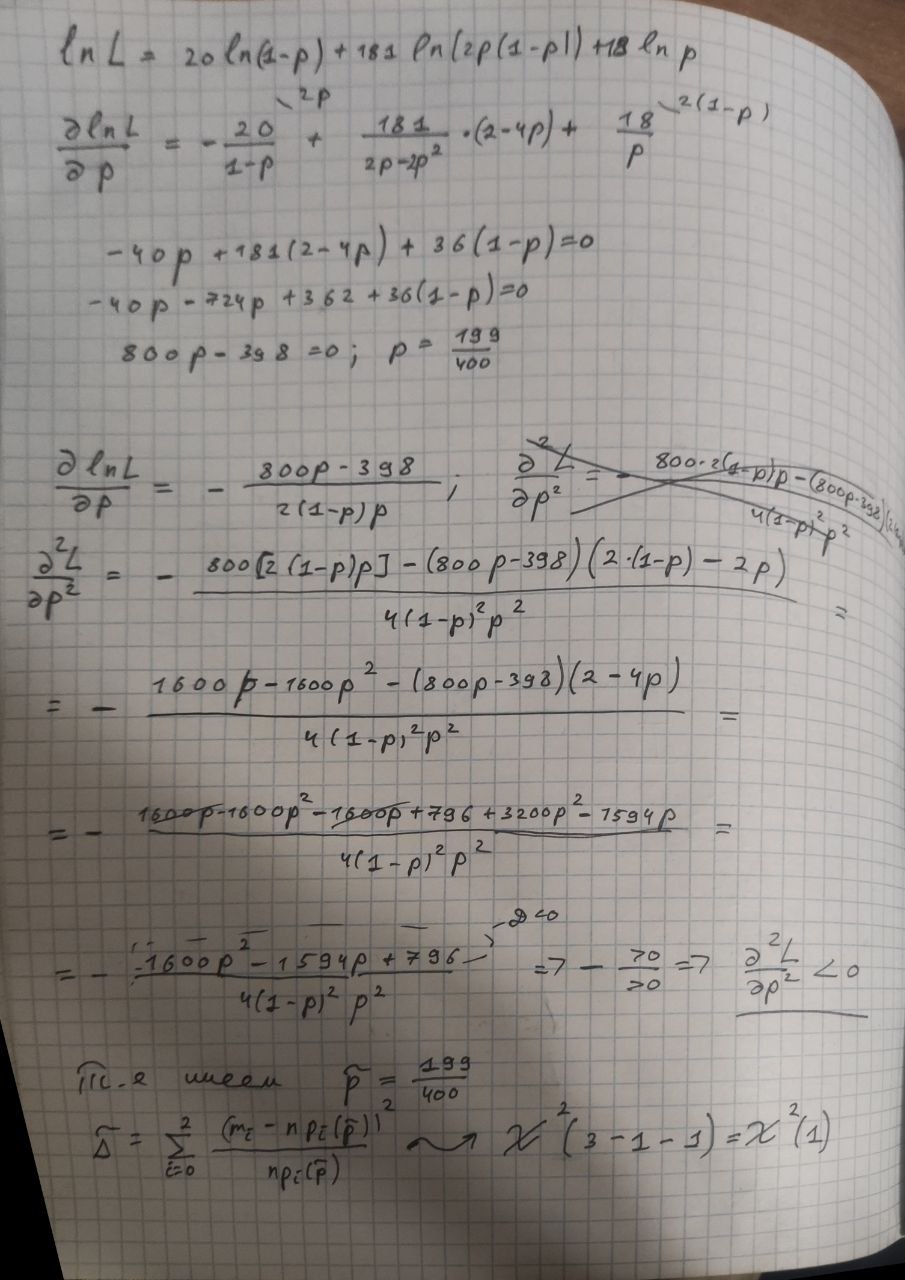 ln L = 20 ln(1-p) + 181 ln(2p(1-p)) + 18 ln p
∂lnL/∂p = - 20/(1-p) \2p + 181/(2p-2p²) · (2-4p) + 18/p \2(1-p)
-40p + 181(2-4p) + 36(1-p) = 0
-40p - 724p + 362 + 36(1-p) = 0
800p - 398 = 0; p = 199/400
∂lnL/∂p = - (800p - 398)/(2(1-p)p) ; ∂²L/∂p² = - (800·2(1-p)p - (800p-398)(2/(4(1-p)²p²)
∂²L/∂p² = - (800[2(1-p)p] - (800p-398)(2·(1-p) - 2p))/(4(1-p)²p²) =
= - (1600p - 1600p² - (800p-398)(2-4p))/(4(1-p)²p²) =
= - (1600p - 1600p² - 1600p + 796 + 3200p² - 1594p)/(4(1-p)²p²) =
= - (1600p² - 1594p + 796)/(4(1-p)²p²) - D<0 => - >0/>0 => ∂²L/∂p² < 0
Т.е имеем p̃ = 199/400
Δ̃ = Σ_{i=0}^{2} (m_i - np_i(p̃))²/(np_i(p̃)) ⤳ χ²(3-1-1) = χ²(1)